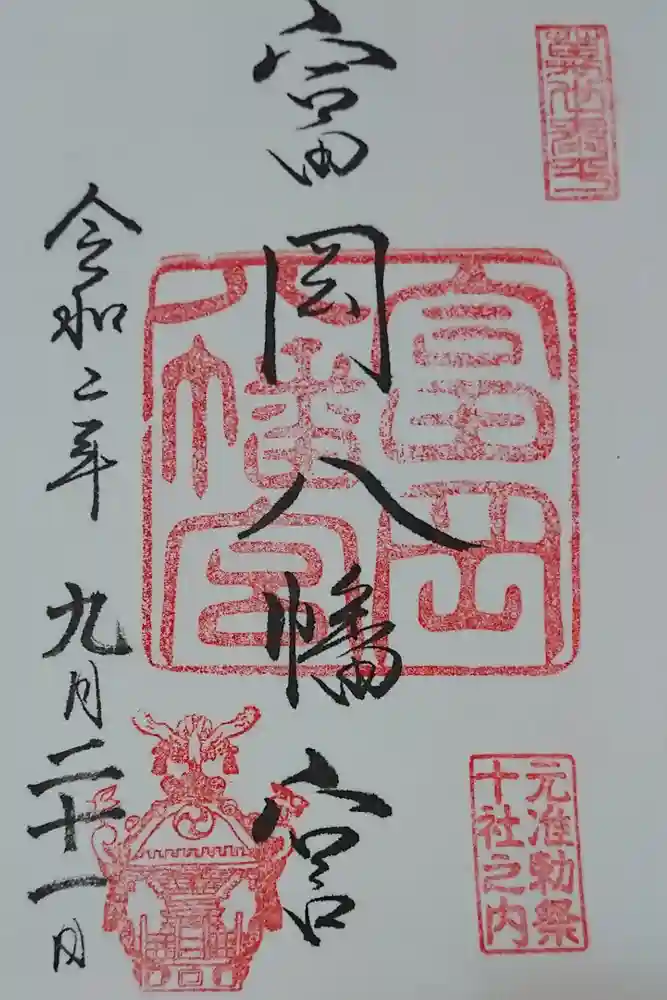 富岡八幡宮
富岡
八幡宮
元准勅祭
十社之内
令和二年九月二十一日